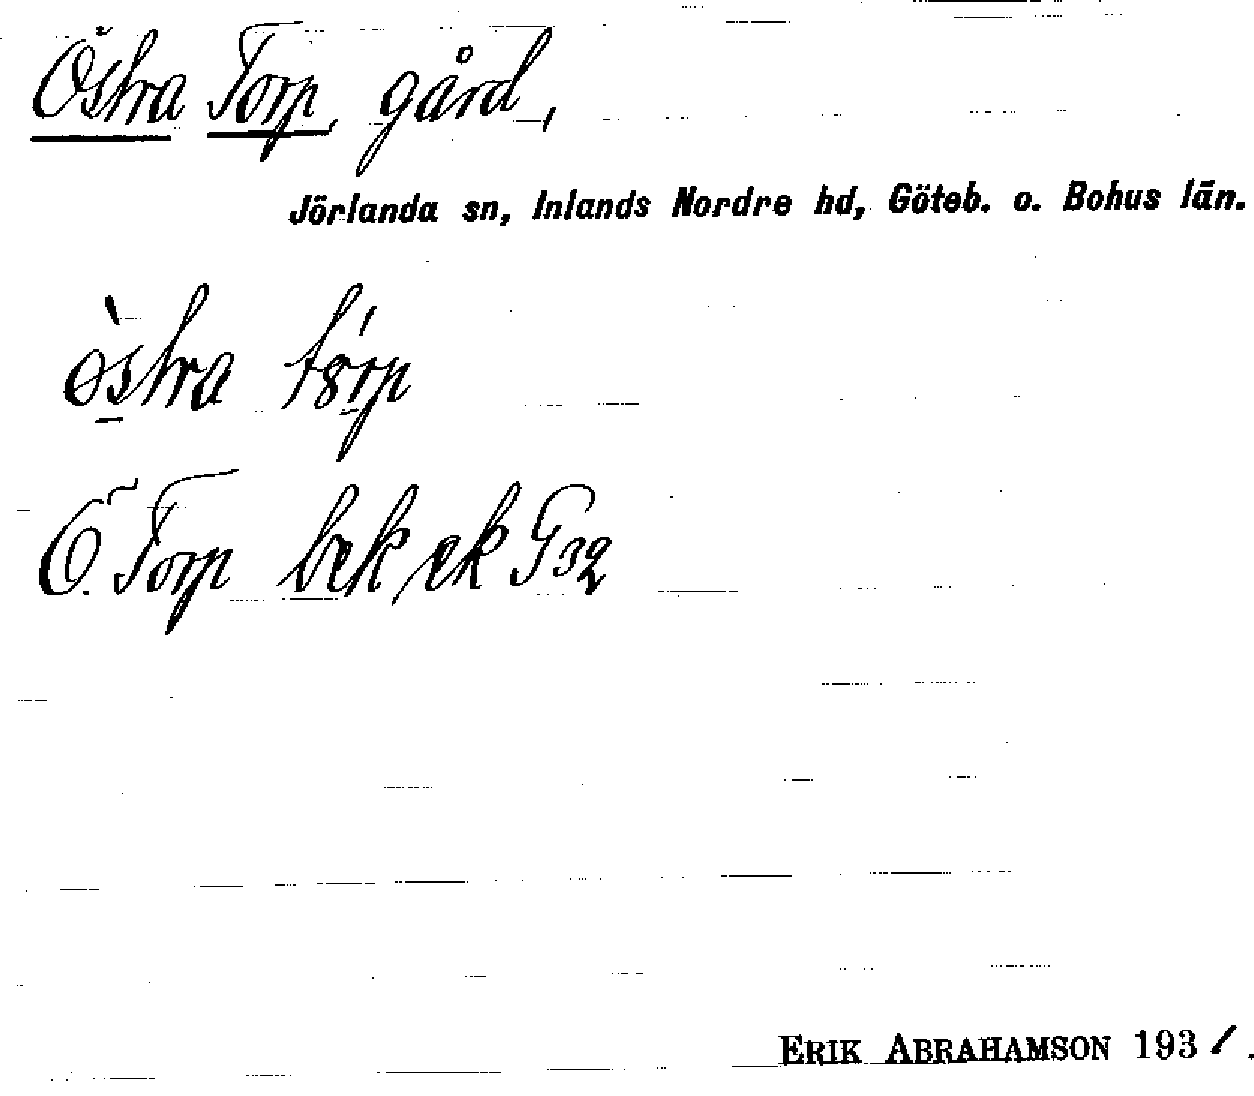 Östra Torp, gård,
Jörlanda sn, Inlands Nordre hd, Göteb. o. Bohus län.
Ö. Torp bek ek G32
ERIK ABRAHAMSON 1931.